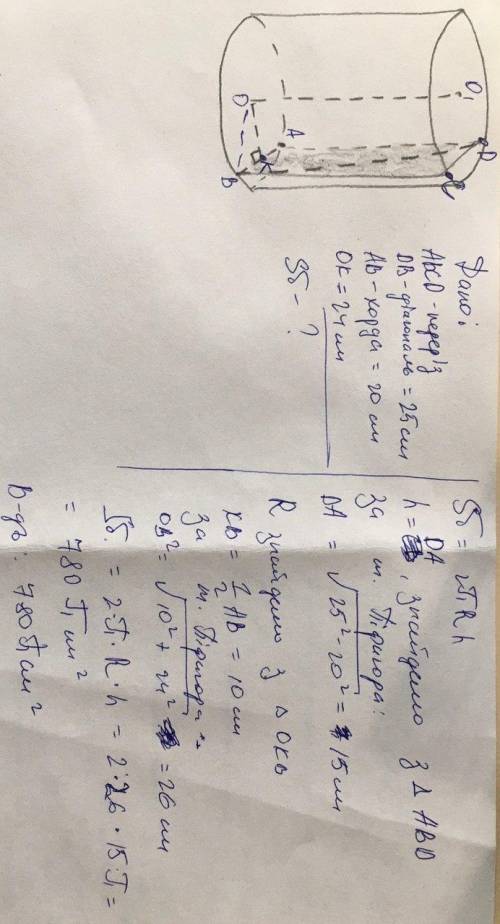 O₁
D
C
O
A
K
B
Дано:
ABCD - переріз
DB - діагональ = 25 см
AB - хорда = 20 см
OK = 24 см
Sб - ?
Sб = 2πRh
h = DA, знайдемо з Δ ABD
за т. Піфагора:
DA = √25² - 20² = 15 см
R знайдемо з Δ OKB
KB = 1/2 AB = 10 см
За т. Піфагора
OB² = √10² + 24² = 26 см
Sб. = 2·π·R·h = 2·26·15·π =
= 780 π см²
В-дь: 780 π см²